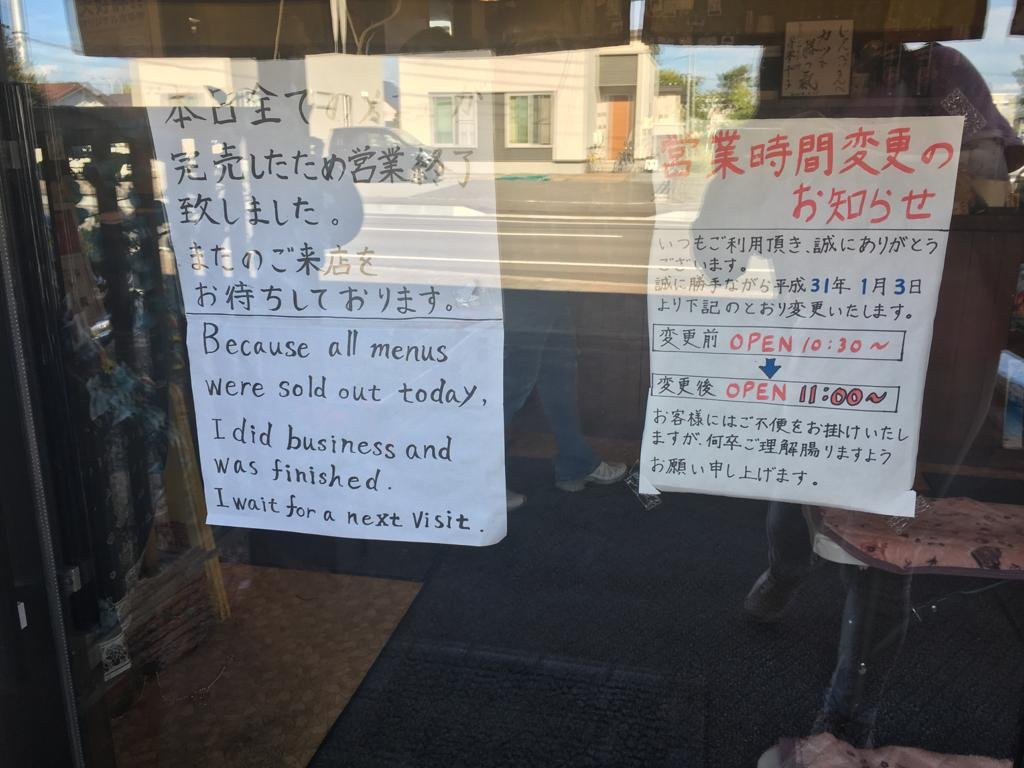 本日全て
完売したため営業終了
致しました。
またのご来店を
お待ちしております。
Because all menus
were sold out today,
I did business and
was finished.
I wait for a next visit.
営業時間変更の
お知らせ
いつもご利用頂き、誠にありがとう
ございます。
誠に勝手ながら平成31年1月3日
より下記のとおり変更いたします。
変更前 OPEN 10:30〜
変更後 OPEN 11:00〜
お客様にはご不便をお掛けいたし
ますが、何卒ご理解賜りますよう
お願い申し上げます。